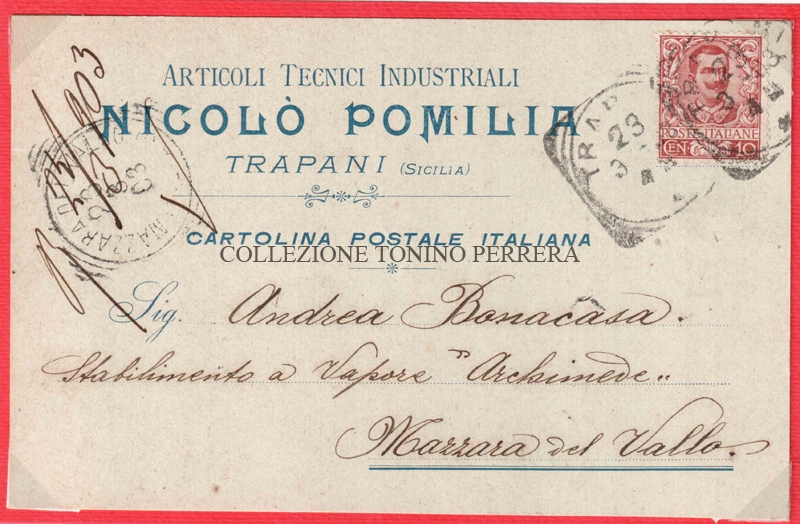 ARTICOLI TECNICI INDUSTRIALI
NICOLÒ POMILIA
TRAPANI (SICILIA)
CARTOLINA POSTALE ITALIANA
COLLEZIONE TONINO PERRERA
Sig. Andrea Bonacasa.
Stabilimento a Vapore "Archimede"
Mazzara del Vallo.
POSTE ITALIANE
CENT. 10
TRAP
23
MAZZARA D
23
03
903